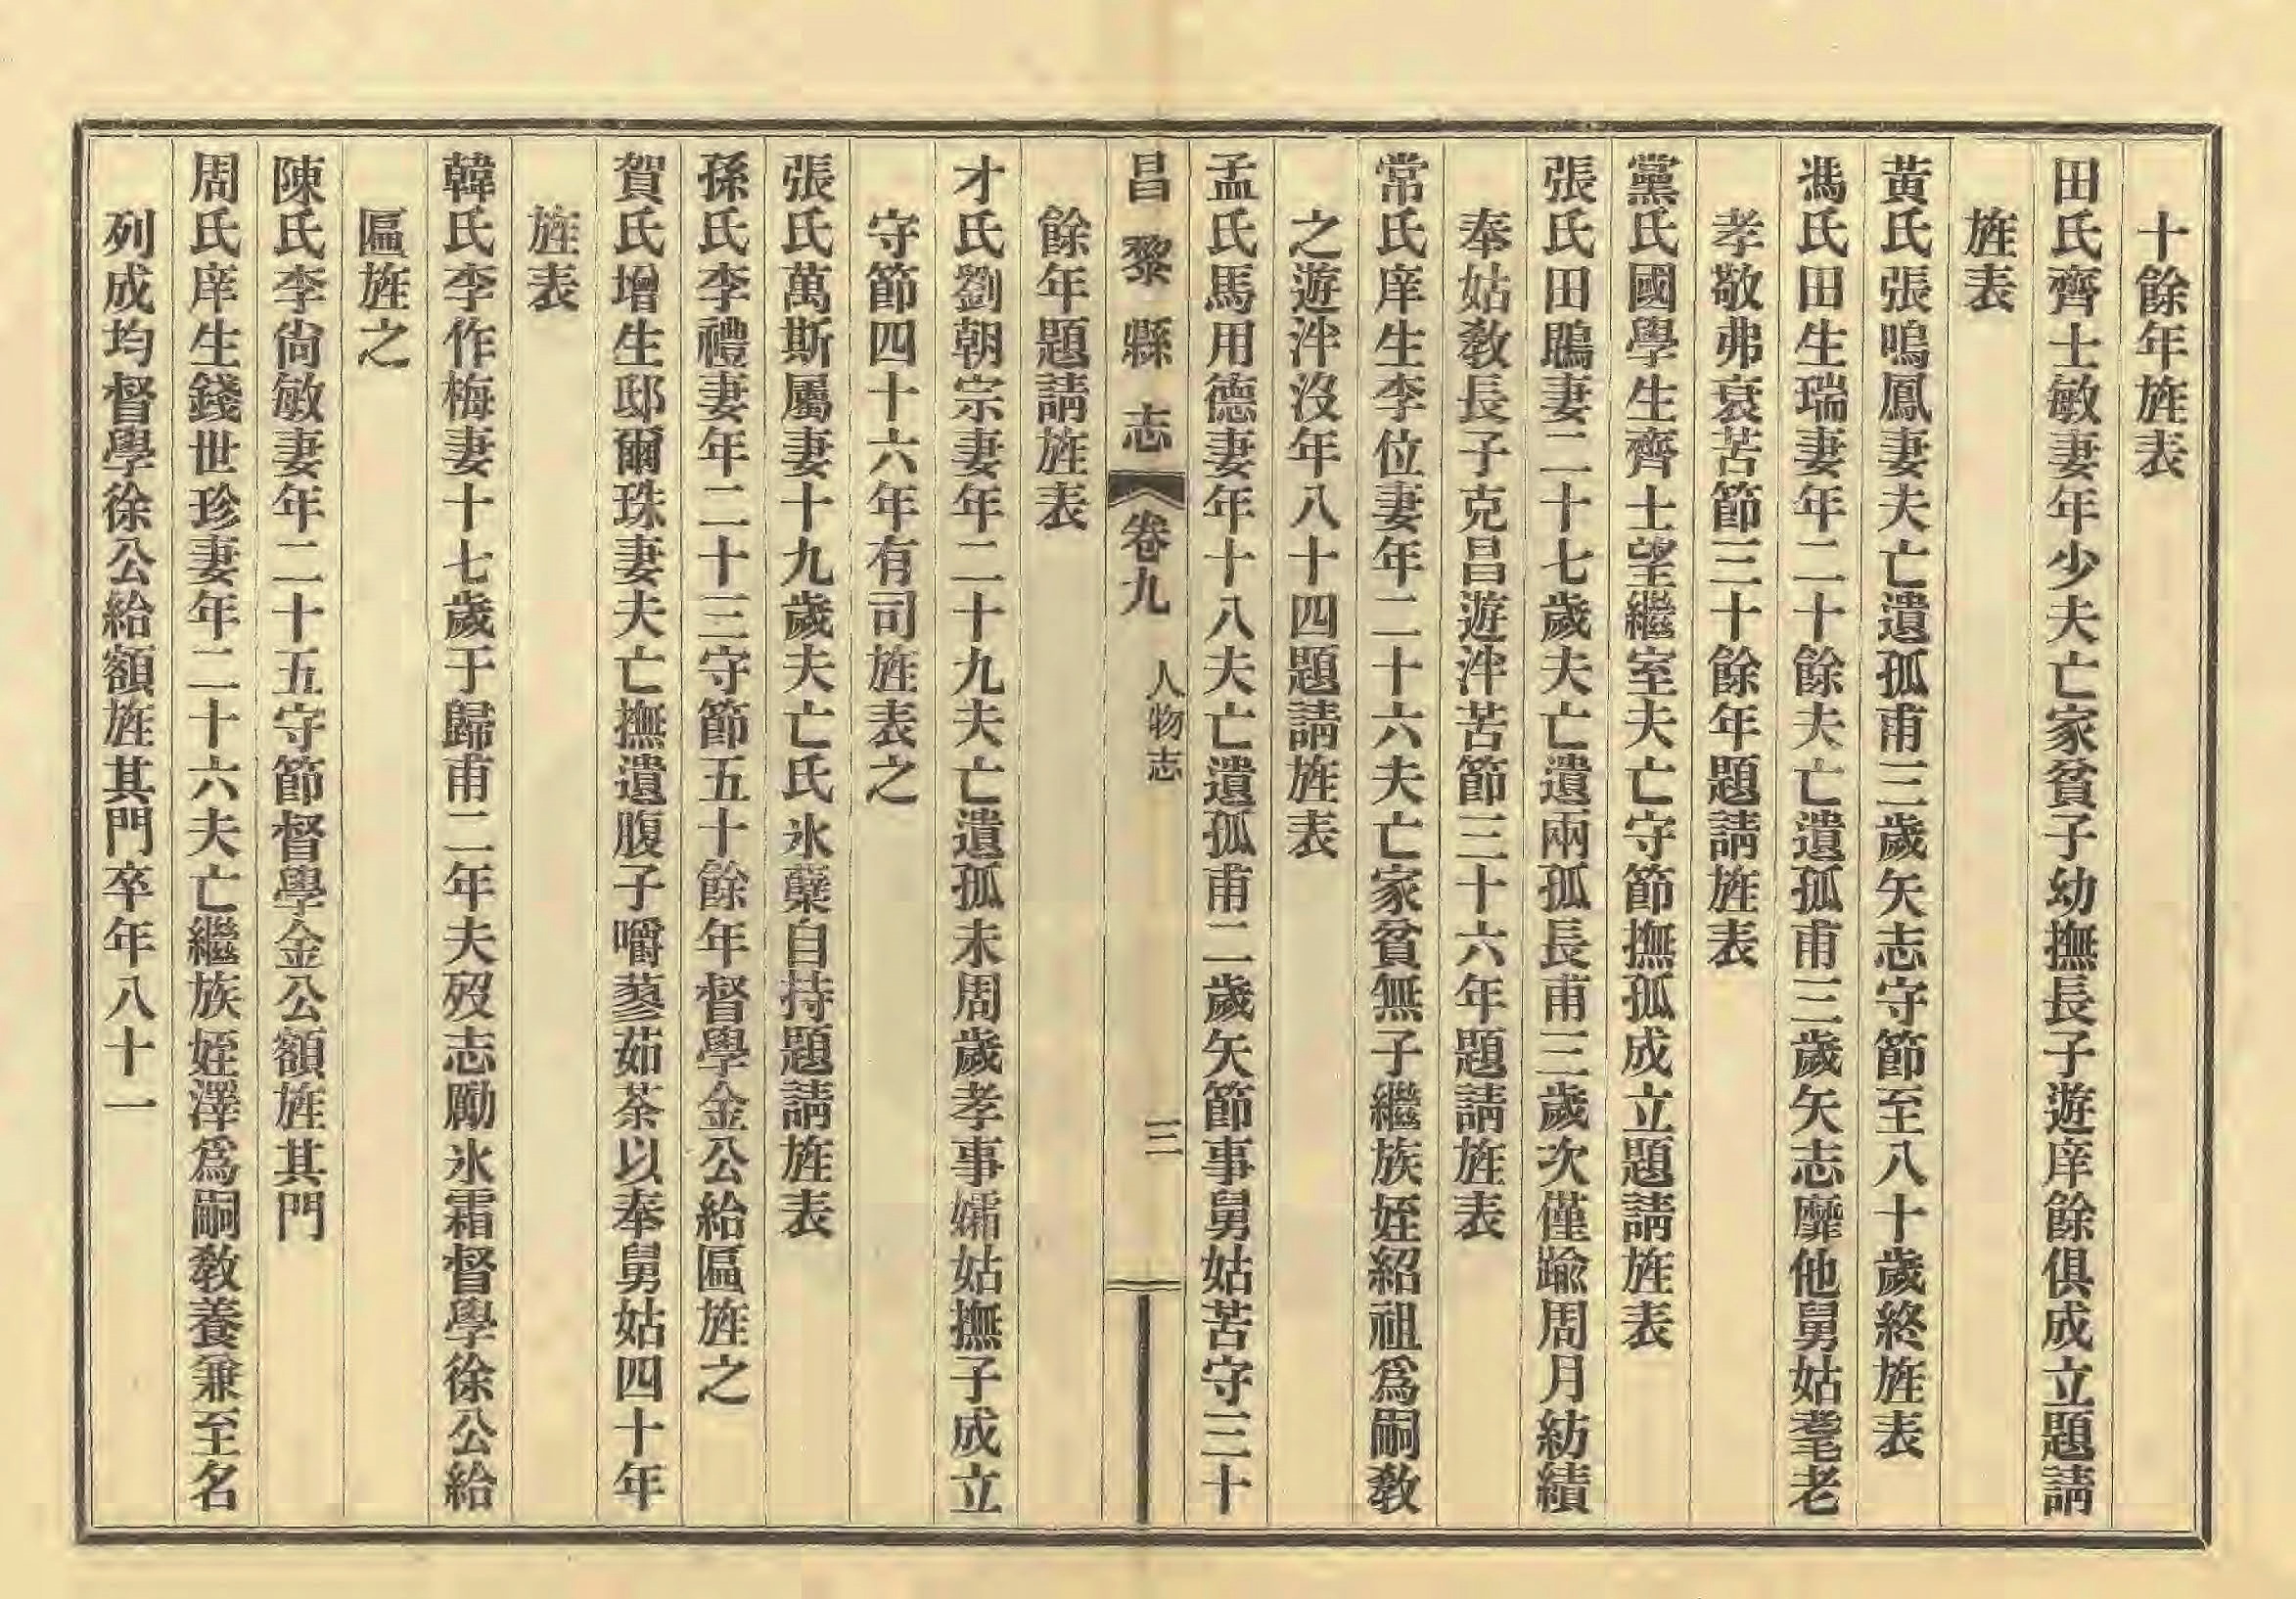 十餘年旌表
田氏齊士敏妻年少夫亡家貧子幼撫長子遊庠餘俱成立題請
旌表
黃氏張鳴鳳妻夫亡遺孤甫三歲矢志守節至八十歲終旌表
馮氏田生瑞妻年二十餘夫亡遺孤甫三歲矢志靡他舅姑耄老
孝敬弗衰苦節三十餘年題請旌表
黨氏國學生齊士望繼室夫亡守節撫孤成立題請旌表
張氏田鵰妻二十七歲夫亡遺兩孤長甫三歲次僅踰周月紡績
奉姑敎長子克昌遊泮苦節三十六年題請旌表
常氏庠生李位妻年二十六夫亡家貧無子繼族姪紹祖爲嗣敎
之遊泮沒年八十四題請旌表
孟氏馬用德妻年十八夫亡遺孤甫二歲矢節事舅姑苦守三十
昌黎縣志 卷九 人物志 三
餘年題請旌表
才氏劉朝宗妻年二十九夫亡遺孤未周歲孝事孀姑撫子成立
守節四十六年有司旌表之
張氏萬斯屬妻十九歲夫亡氏氷蘗自持題請旌表
孫氏李禮妻年二十三守節五十餘年督學金公給匾旌之
賀氏增生邸爾珠妻夫亡撫遺腹子嚼蓼茹茶以奉舅姑四十年
旌表
韓氏李作梅妻十七歲于歸甫二年夫歿志勵氷霜督學徐公給
匾旌之
陳氏李尙敏妻年二十五守節督學金公額旌其門
周氏庠生錢世珍妻年二十六夫亡繼族姪澤爲嗣敎養兼至名
列成均督學徐公給額旌其門卒年八十一